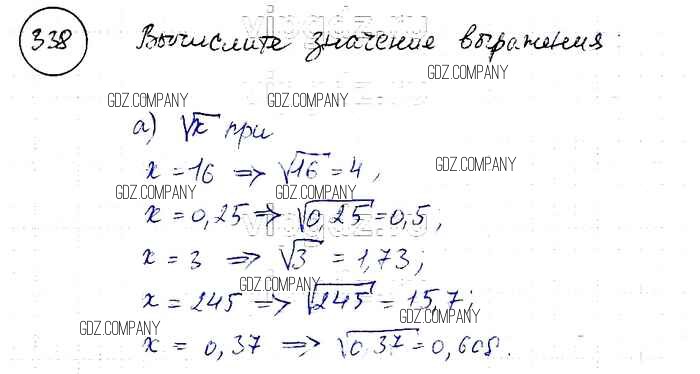 338 Вычислите значение выражения:
а) √x при
x = 16 => √16 = 4,
x = 0,25 => √0,25 = 0,5;
x = 3 => √3 = 1,73;
x = 245 => √245 = 15,7;
x = 0,37 => √0,37 = 0,608.
GDZ.COMPANY
GDZ.COMPANY
GDZ.COMPANY
GDZ.COMPANY
GDZ.COMPANY
GDZ.COMPANY
GDZ.COMPANY
GDZ.COMPANY
GDZ.COMPANY
GDZ.COMPANY